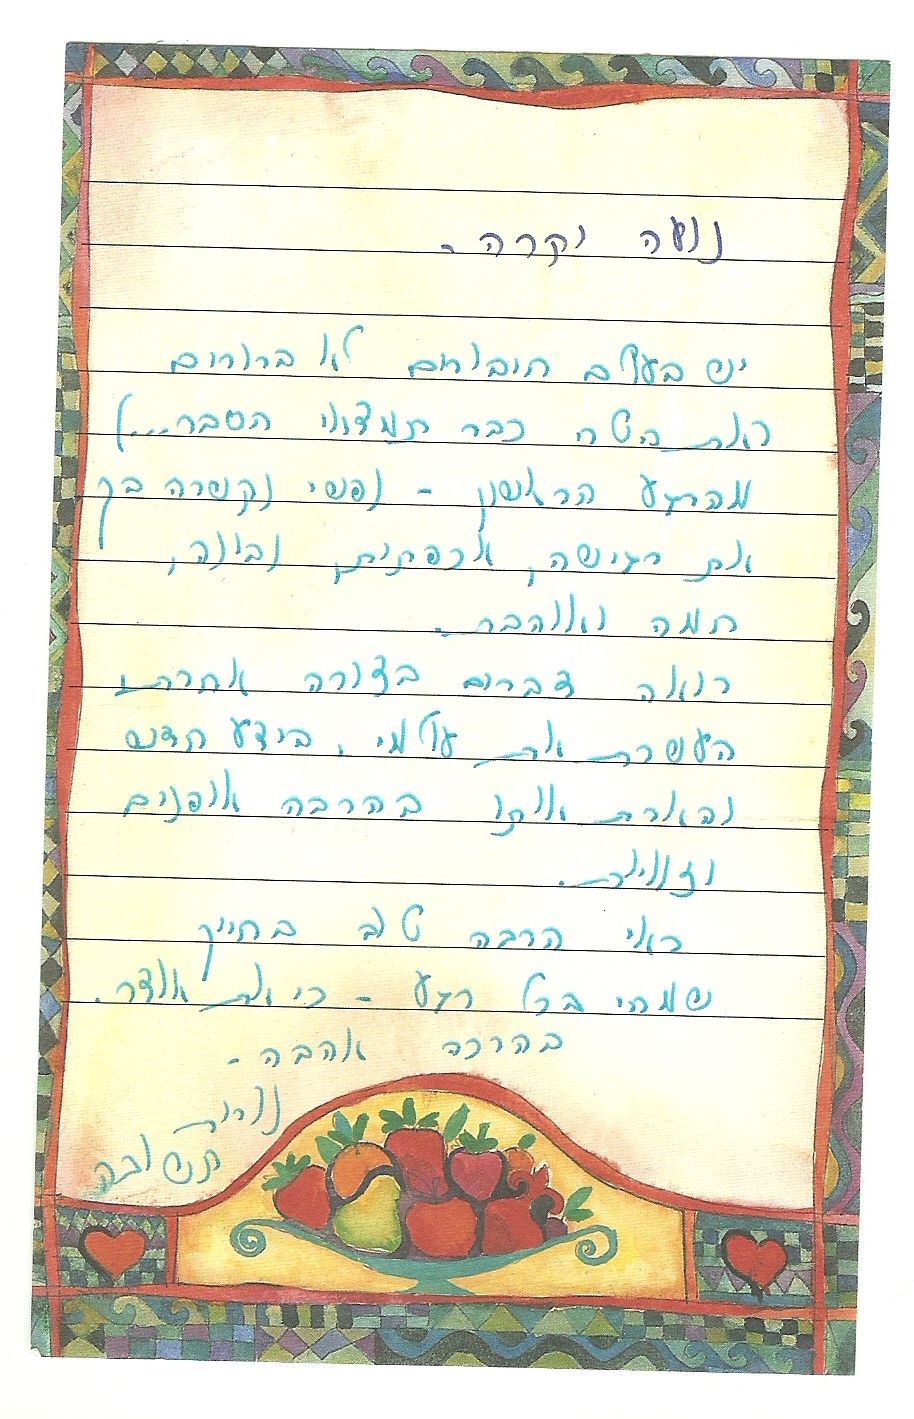 נועה יקרה -
יש בעולם חיבורים לא ברורים
(את השה כבר תמצאי הסבר...)
מהרגע הראשון - נפשי נקשרה בך
את רגישה, אכפתית, נבונה,
חמה ואוהבת.
רואה דברים בצורה אחרת,
העשרת את עולמי, בידע חדש
והארת אותו בהרבה אופנים
וזוויות.
ראי הרבה טוב בחייך
שמחי בכל רגע - כי את אוצר.
בהרבה אהבה -
נורית
תשובה